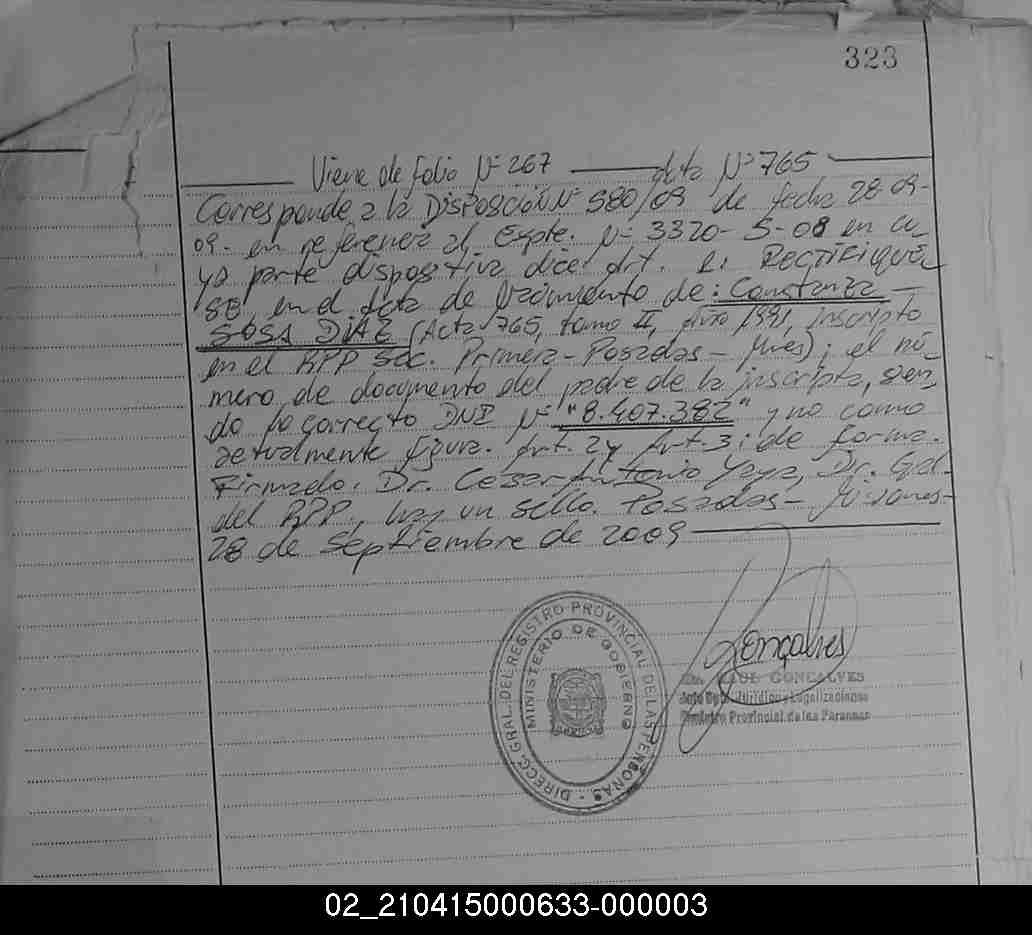 323
Viene de folio Nº 267 Acta Nº 765
Corresponde a la DISPOSCIÓN Nº 580/09 de fecha 28-09-
09- en referencia al Expte. Nº 3320-S-08 en cu-
ya parte dispositiva dice: Art. 1: RECTIFIQUE
SE en el Acta de Nacimiento de: Constanza
SOSA DIAZ (Acta 765, tomo II, Año 1991, inscripto
en el RPP Sec. Primera-Posadas-Mnes); el nú-
mero de documento del padre de la inscripta, sien
do lo correcto DNI Nº "8.407.382" y no como
actualmente figura. Art. 2 y Art. 3: de forma.
Firmado. Dr. Cesar Antonio Yaya, Dr. Gral.
del RPP., hay un sello. Posadas- Misiones-
28 de Septiembre de 2009
DIRECC. GRAL. DEL REGISTRO PROVINCIAL DE LAS PERSONAS
MINISTERIO DE GOBIERNO
Gonçalves
RAUL GONCALVES
Jurídico y Legalizaciones
Provincial de las Personas
02_210415000633-000003